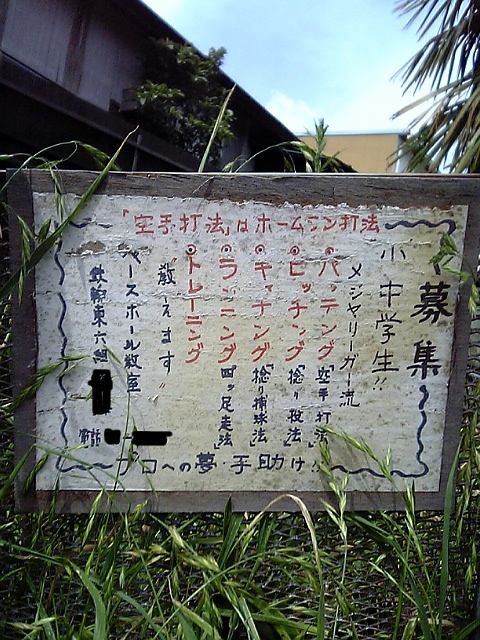 「空手打法」はホームラン打法
募集
小中学生!!
メジャリーガー流
・バッテング「空手打法」
・ピッチング「捻り投法」
・キャチング「捻り捕球法」
・ランニング 四ッ足・走法
・トレーニング
"教えます"
ベースボール教室
東六組
電話
プロへの夢・手助け